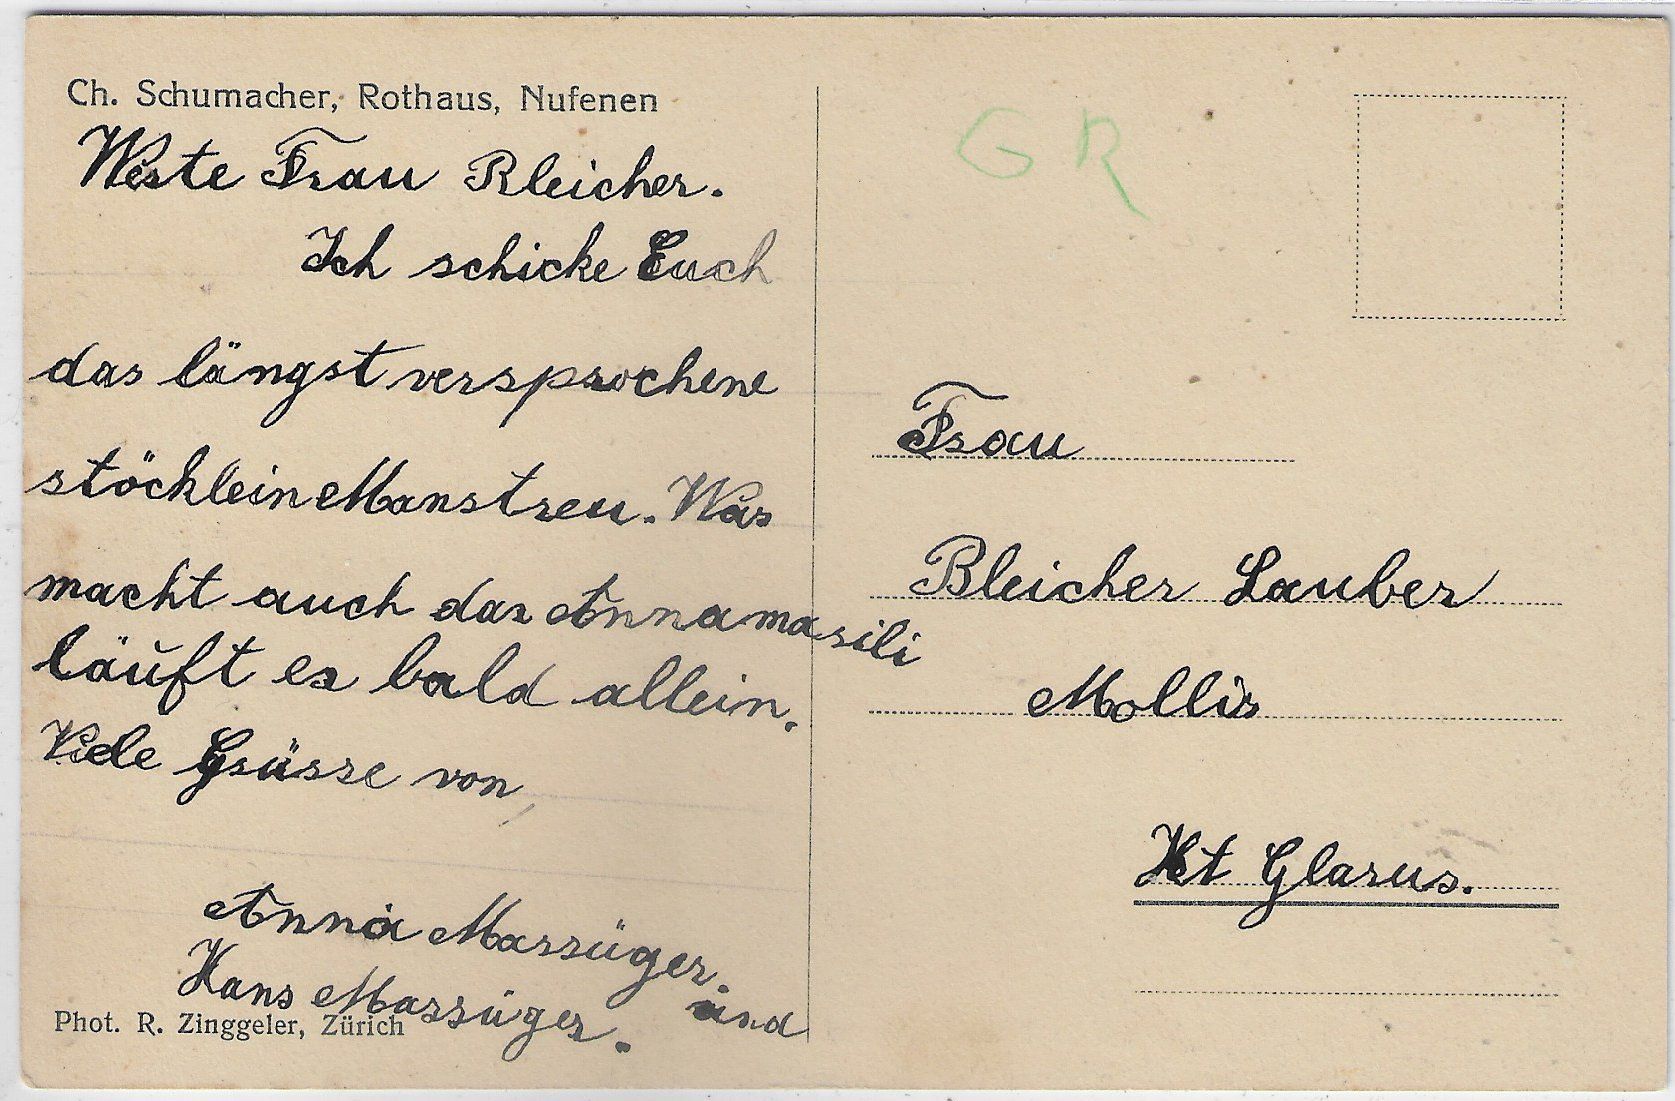 Ch. Schumacher, Rothaus, Nufenen
Werte Frau Bleicher.
Ich schicke Euch
das längst versprochene
stöcklein Manstreu. Was
macht auch das Annamarili
läuft es bald allein.
Viele Grüsse von,
Anna Marrüger.
und
Hans Marrüger.
Phot. R. Zinggeler, Zürich
GR
Frau
Bleicher Lauber
Mollis
Kt Glarus.